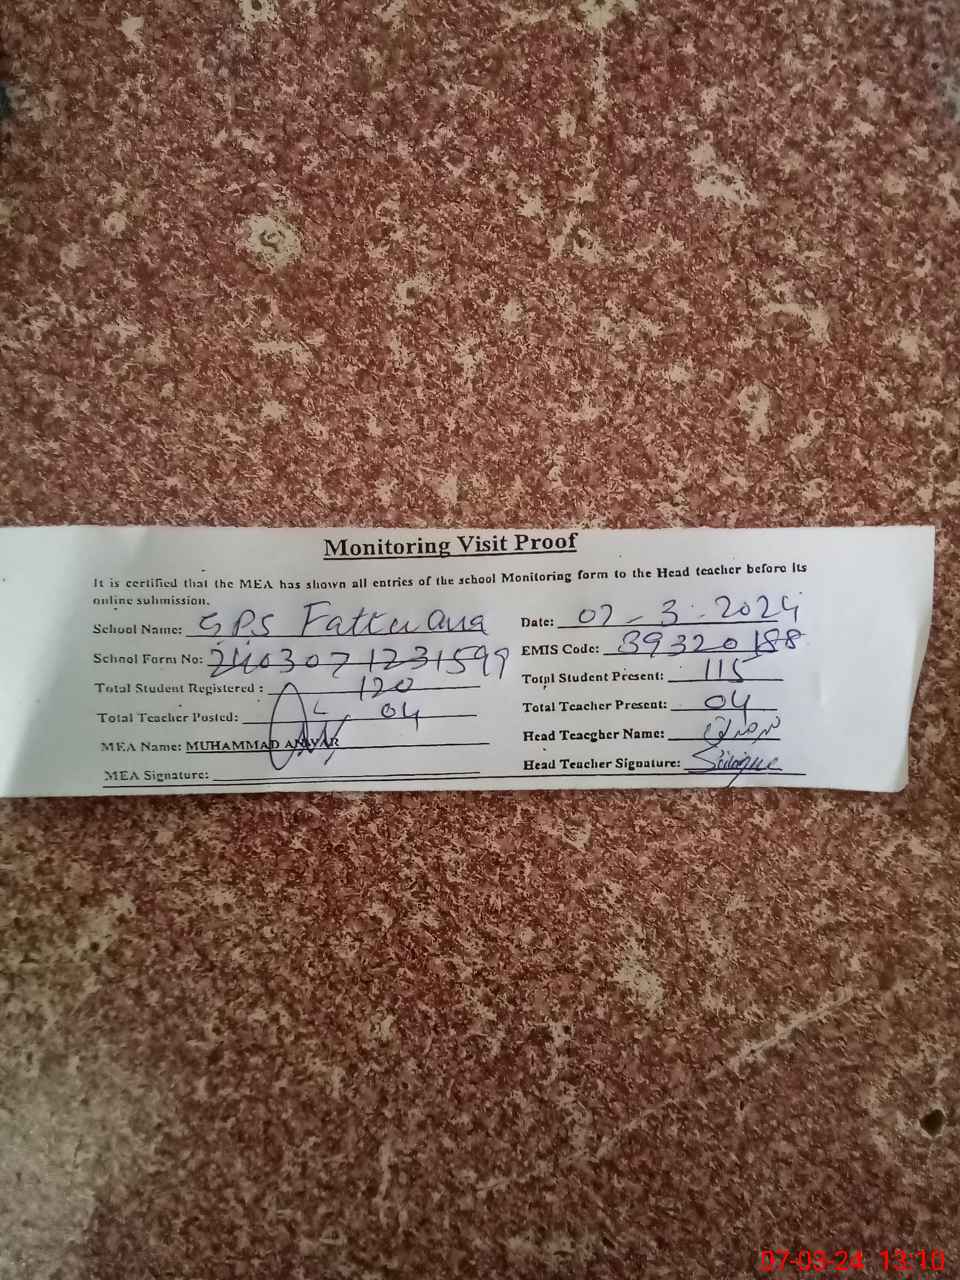 Monitoring Visit Proof
It is certified that the MEA has shown all entries of the school Monitoring form to the Head teacher before its
online submission.
School Name: GPS Fattu Ana Date: 07-3-2024
School Form No: 2403071231599 EMIS Code: 39320188
Total Student Registered : 120 Total Student Present: 115
Total Teacher Posted: 04 Total Teacher Present: 04
MEA Name: MUHAMMAD ANWAR Head Teacegher Name:
MEA Signature: Head Teacher Signature:
07-03-24 13:10